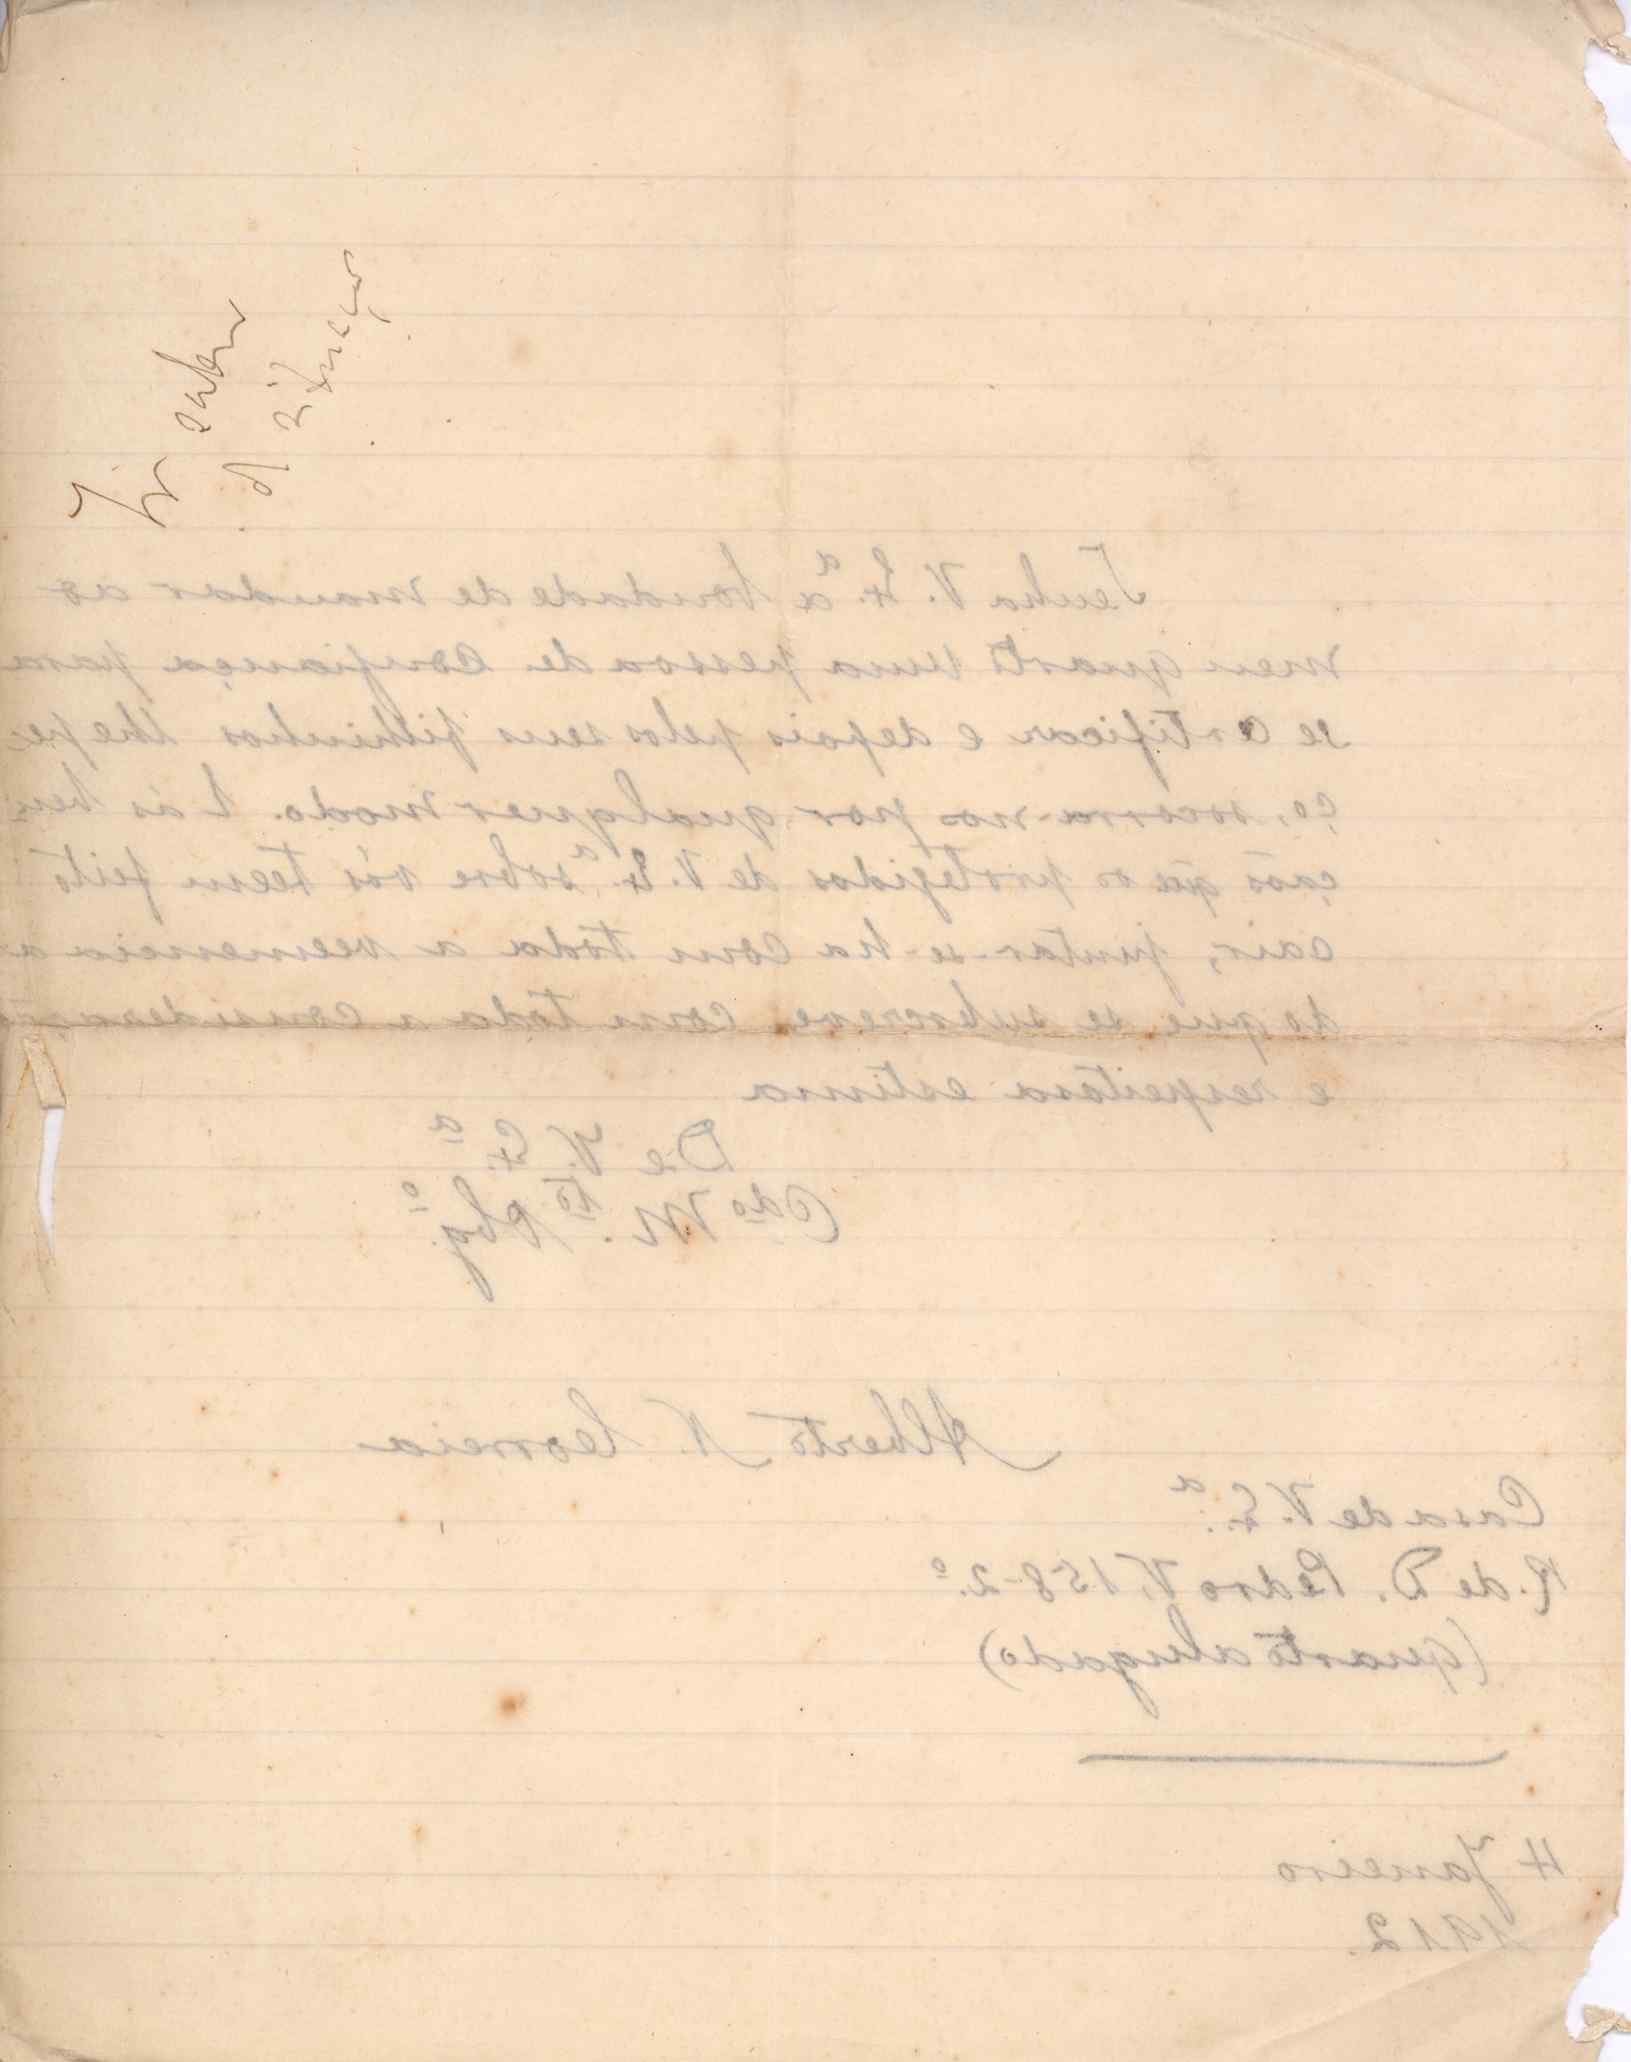 Tenha V. Ex.ª a bondade de mandar ao
meu quarto uma pessoa de confiança para
se certificar e depois pelos seus filhinhos lhe pe
ço, socorra-nos por qualquer modo. E ás ben
çãos que os protegidos de V. Ex.ª sobre vós teem feito
cair, juntar-se-ha com toda a veemencia a
do que se subscreve, com toda a consideração
e respeitosa estima
De V. Ex.ª
C.do M.to Obg.o
Alberto N. Correia
Casa de V. Ex.ª
R. de D. Pedro V, 158-2.º
(quarto alugado)
4 Janeiro
1912.